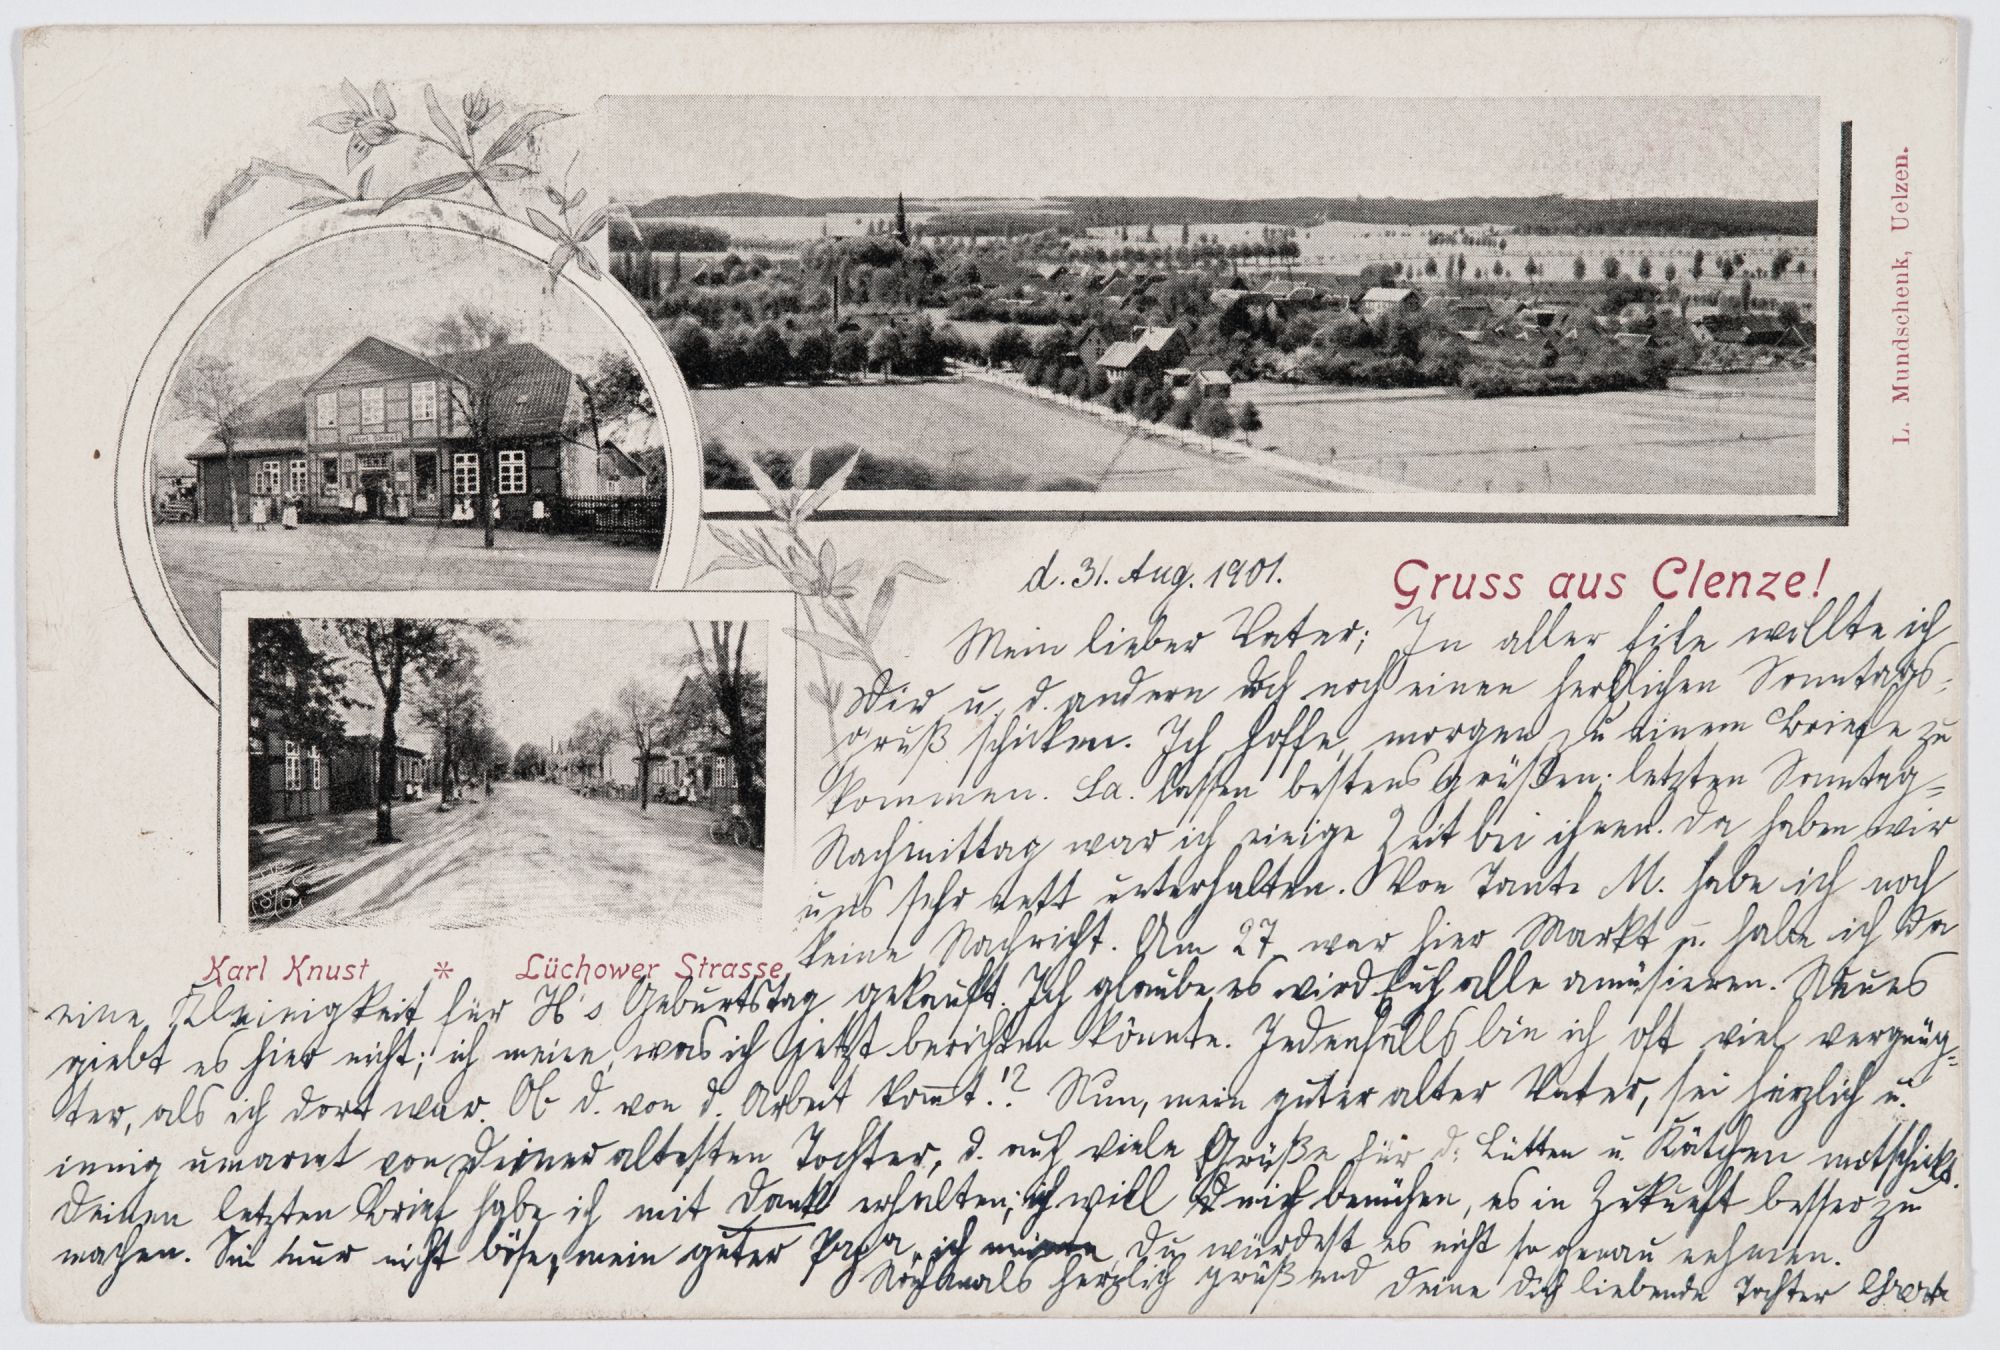 L. Mundschenk, Uelzen.
Gruss aus Clenze!
Karl Knust * Lüchower Strasse
d. 31. Aug. 1901.
Mein lieber Vater; In aller Eile wollte ich
Dir u. d. andern doch noch einen herzlichen Sonntags-
gruß schicken. Ich hoffe, morgen zu einem Briefe zu
kommen. La. lassen bestens grüßen; letzten Sonntag-
Nachmittag war ich einige Zeit bei ihnen. Da haben wir
uns sehr nett unterhalten. Von Tante M. habe ich noch
keine Nachricht. Am 27. war hier Markt u. habe ich da
eine Kleinigkeit für H's Geburtstag gekauft. Ich glaube, es wird Euch alle amüsieren. Neues
giebt es hier nicht; ich meine, was ich jetzt berichten könnte. Jedenfalls bin ich oft viel vergnüg-
ter, als ich dort war. Ob d. von d. Arbeit kommt!? Nun, mein guter alter Vater, sei herzlich u.
innig umarmt von Deiner ältesten Tochter, d. auch viele Grüße für d. Lütten u. Kätchen mitschickt.
Deinen letzten Brief habe ich mit Dank erhalten; ich will mich bemühen, es in Zukunft besser zu
machen. Sei nur nicht böse, mein guter Papa, ich meine Du würdest es nicht so genau nehmen.
Nochmals herzlich grüßend Deine Dich liebende Tochter